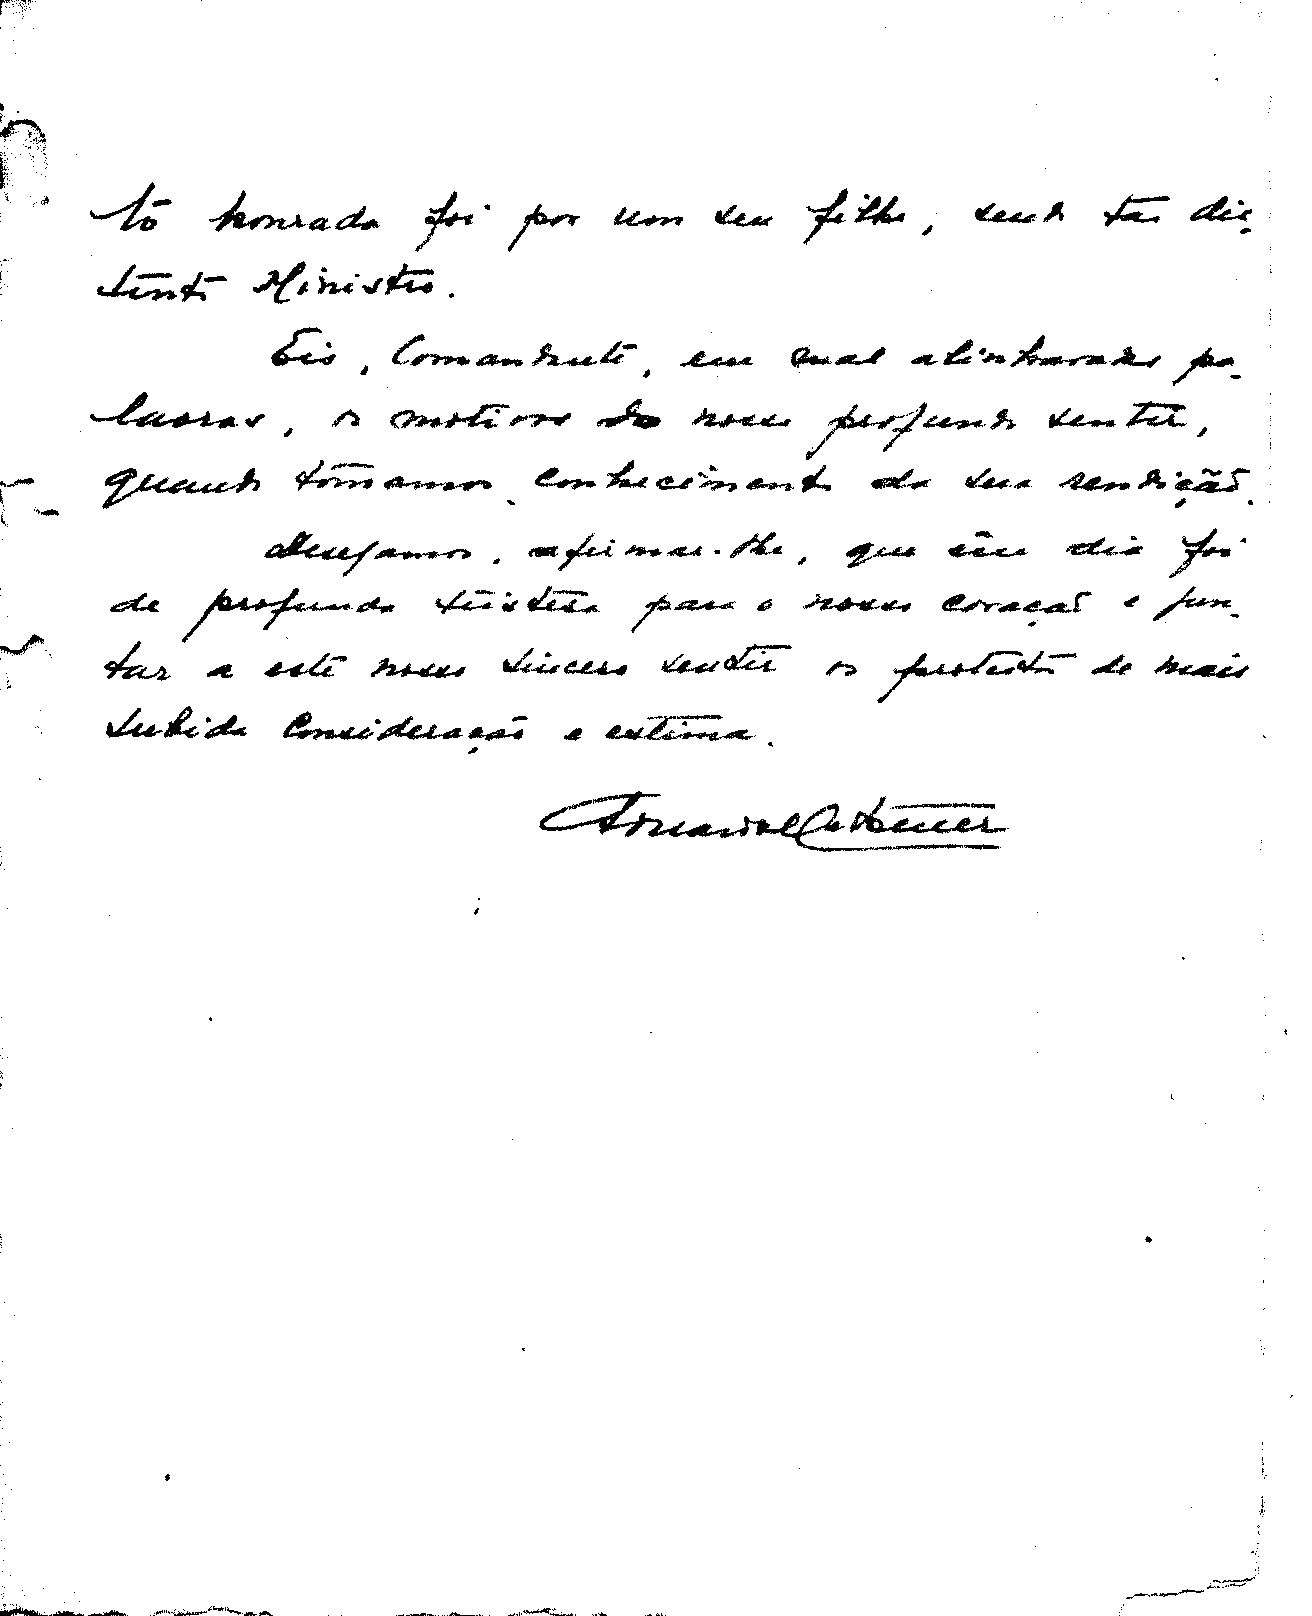 tô honrada foi por um seu filho, sendo tão dis-
tinto Ministro.
Eis, Comandante, em mal alinhavadas pa-
lavras, o motivo do nosso profundo sentir,
quando tômamos conhecimento da sua rendição.
Desejamos, afirmar-lhe, que êsse dia foi
de profunda tristesa para o nosso coração e jun-
tar a este nosso sincero sentir os protestos de mais
subida consideração e estima.